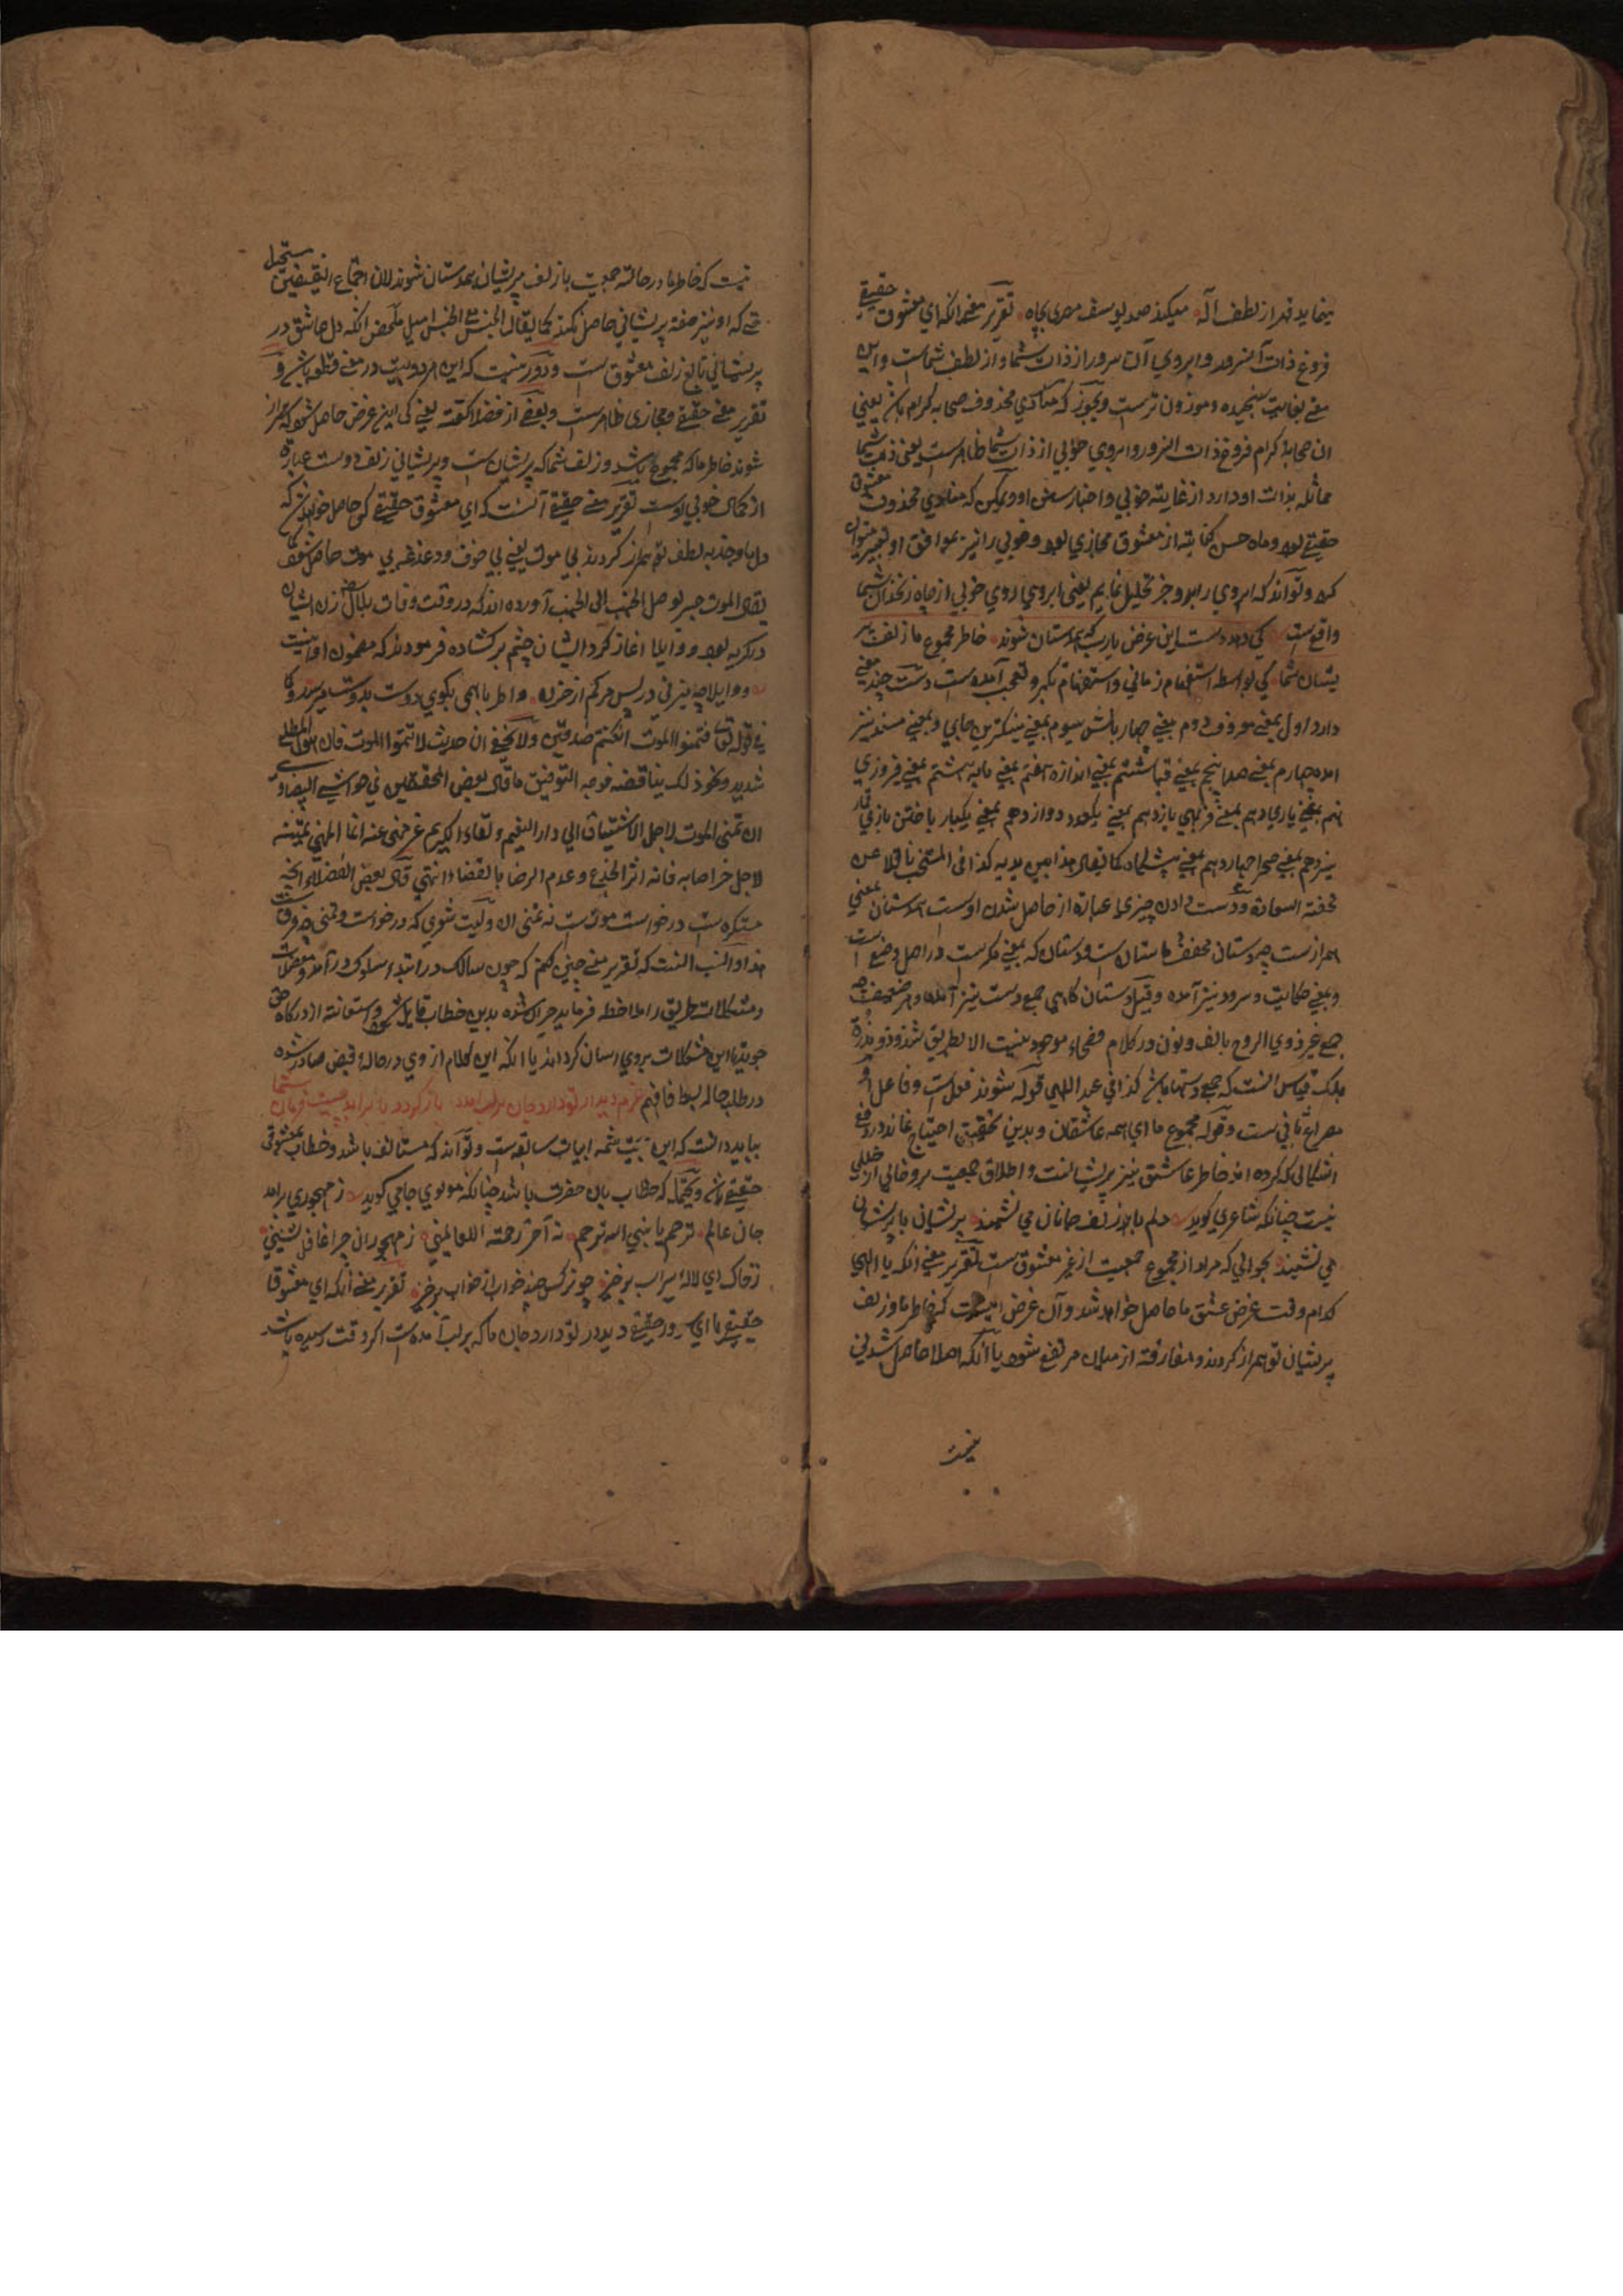 مینماید قدر از لطف آله میکند صد یوسف مصری بچاه تقریر معنی آنکه ای معشوق حقیقی
فروغ ذات آنسرور و ابروی آن سرور از ذات شما و از لطف شماست و این
معنی بغایت سنجیده و موزون ترست و یجوز که منادی محذوف صحابه کرام باشد یعنی
ای صحابه کرام فروغ ذات و ابروی خوبی از ذات شما ظاهرست یعنی ذات شما
مماثله بذات او دارد از غایته خوبی و اختیار او و ممکن که منادی محذوف معشوق
حقیقی بود و ماه حسن کنایته از معشوق مجازی بود و خوبی را نیز موافق او تعبیر
کرد و تواند که ابروی را بدو جز تحلیل نمایم یعنی ابروی روی خوبی از چاه زنخدان شما
واقع است کی دهد دست این غرض یارب که همدستان شوند خاطر مجموع ما زلف پر
یشان شما کی بواسطه استفهام زمانی و استفهام و تعجب آمده است دست چند معنی
دارد اول بمعنی معروف دوم بمعنی چهار بالش سیوم بمعنی جای و بمعنی مسند نیز
آمده چهارم بمعنی پنجم بمعنی ششم بمعنی اندازه هفتم بمعنی هشتم بمعنی فیروزی
نهم بمعنی یاری دهم بمعنی یازدهم بمعنی دوازدهم بمعنی یکبار باختن بازی
سیزدهم بمعنی چهاردهم بمعنی کما یقال کذا فی المنتخب ناقلا عن
تحفته السعادة و دست دادن چیزی عبارة از حاصل شدن اوست همدستان بمعنی
همرازست چه دستان مخفف داستان است و دستان که بمعنی مکرست در اصل وضع است
و بمعنی حکایت و سرود نیز آمده و قیل دستان گاهی جمع دست نیز آمده و هو ضعیف چه
جمع غیر ذوی الروح بالف و نون در کلام فصحاء موجود نیست الا بطریق شذوذ و ندرة
بلکه قیاس آنست که جمع دستها باشد کذا فی عبد اللهی قوله شوند فعل است و فاعل او
مصراع ثانی ست و قوله مجموع ما ای همه عاشقان و بدین تحقیق احتیاج نماند در دفع
اشکالی که کرده اند خاطر عاشق نیز پریشانست و اطلاق جمعیت برو خالی از خللی
نیست چنانکه شاعری گوید دلم با زلف جانان می نشیند پریشان با پریشان
می نشیند بجوابی که مراد از مجموع جمعیت از غیر معشوق ست تقریر معنی آنکه یا الهی
کدام وقت غرض عشق ما حاصل خواهد شد و آن غرض اینست که خاطر ما و زلف
پریشان تو همراز گردند و مفارقته از میان مرتفع شود یا آنکه اصلا حاصل شدنی
نیست
نیست که خاطر ما در حالته جمعیت با زلف پریشان همدستان شوند لان اجتماع النقیضین مستحیل
حتی که او نیز صفته پریشانی حاصل نکند کما یقال الجنس الی الجنس امیل ملخص آنکه دل عاشق در
پریشانی تابع زلف معشوق است و دور نیست که این هر دو بیت در معنی قطعه باشد و
تقریر معنی حقیقی و مجازی ظاهرست و بعضی از فضلا گفته یعنی کی این غرض حاصل شود که همراز
شوند خاطر ما که مجموع باشد و زلف شما که پریشان ست و پریشانی زلف دوست عبارة
از کمال خوبی اوست تقریر معنی حقیقی آنست که ای معشوق حقیقی کی حاصل خواهد شد که
دل ما و جذبه لطف تو همراز گردند بی موت یعنی بی خوف و دغدغه بی موت حاصل شود
یقال الموت جسر یوصل الحبیب الی الحبیب آورده اند که در وقت وفات بلال رض زن ایشان
در گریه بود و واویلا آغاز کرد ایشان چشم بر کشاده فرمودند که مضمون او اینست
واویلا چه میزنی در پس مرگم از حزن واطربا همی بگوی دوست بدوست میرسد و کما
فی قوله تعالی فتمنوا الموت ان کنتم صدقین و لا یخفی ان حدیث لا تتمنوا الموت فان هول المطلع
شدید و نحو ذلک یناقضه فوجه التوفیق ما قال بعض المحققین فی حواشی البیضاوی
ان تمنی الموت لاجل الاشتیاق الی دار النعیم و لقاء الکریم غیر منهی عنه انما المنهی تمنیه
لاجل ضر اصابه فانه اثر الجزع و عدم الرضا بالقضاء انتهی قال بعض الفضلاء آنچه
منکره ست درخواست موت ست نه تمنی آن و لیت شعری که درخواست و تمنی چه فرق است
هذا و انسب آنست که تقریر معنی چنین کنم که چون سالک در ابتداء سلوک در آمد و معضلات
و مشکلات طریق را ملاحظه فرماید حیران شده بدین خطاب قایل شود و استعانته از درگاه حق
جوید تا این مشکلات بروی آسان گرداند یا آنکه این کلام از وی در حاله قبض صادر شده
در طلب حاله بسط فافهم عزم دیدار تو دارد جان بر لب آمده باز گردد یا برآید چیست فرمان شما
بباید دانست که این بیت تتمه ابیات سابقه ست و تواند که مستانف باشد و خطاب بمعشوق
حقیقی باشد و یحتمل که خطاب بآن حضرت باشد چنانکه مولوی جامی گوید ز مهجوری برآمد
جان عالم ترحم یا نبی الله ترحم نه آخر رحمته اللعالمینی ز مهجوران چرا غافل نشینی
ز خاک ای لاله سیراب برخیز چو نرگس چند خواب از خواب برخیز تقریر معنی آنکه ای معشوق
حقیقی یا ای سرور حقیقی دیدار تو دارد جان ما که بر لب آمده است اگر وقت رسیده باشد